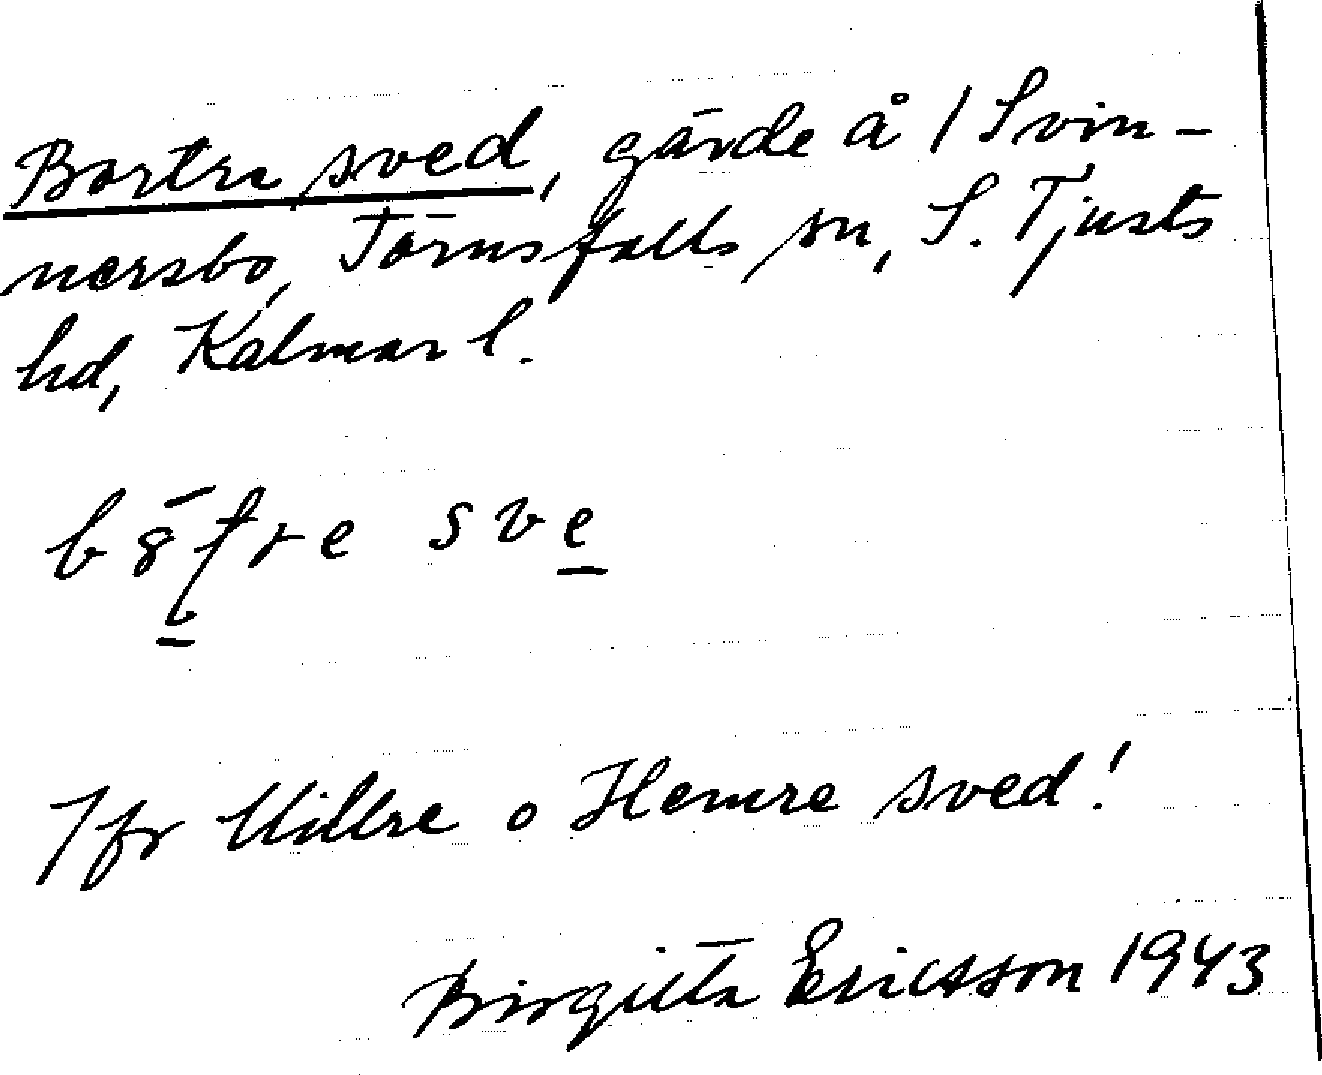 Bortre sved, gärde å 1 Svin-
nersbo, Törnsfalls sn, S. Tjusts
hd, Kalmar l.
sve
Jfr Millre o Hemre sved!
Birgitta Ericsson 1943